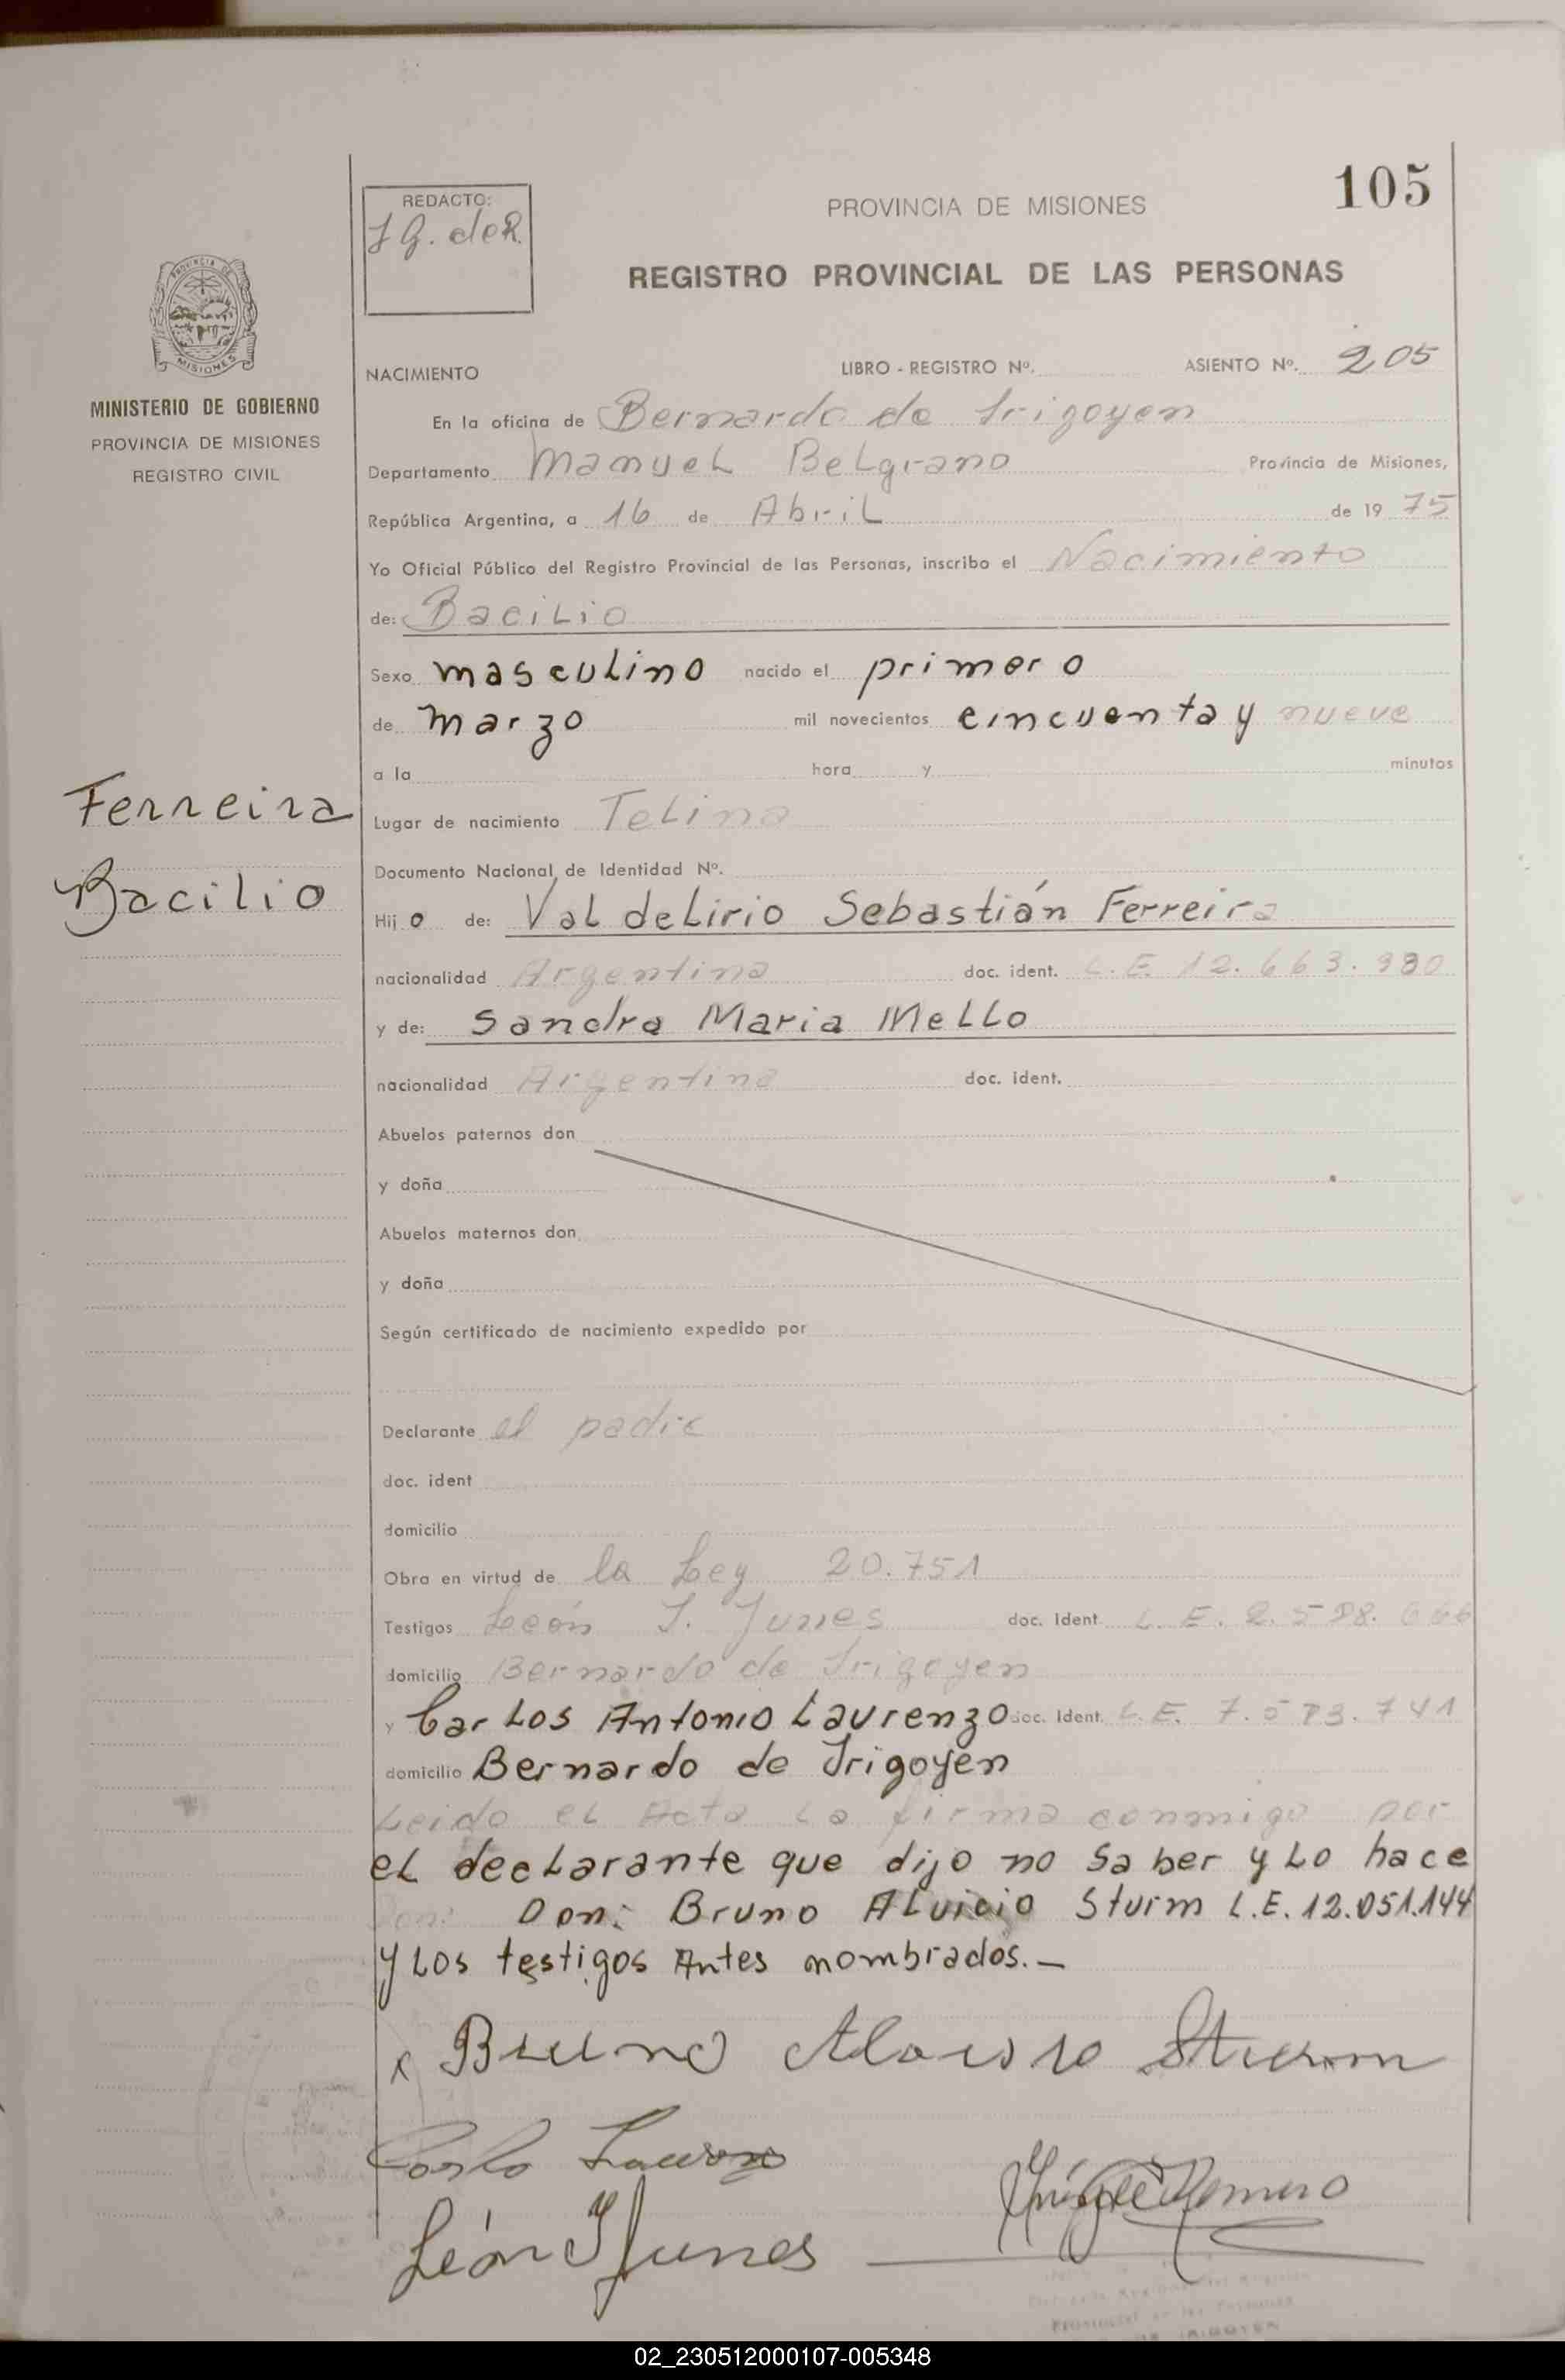 105
REDACTO:
J G. de R.
PROVINCIA DE MISIONES
REGISTRO PROVINCIAL DE LAS PERSONAS
PROVINCIA DE
MISIONES
MINISTERIO DE GOBIERNO
PROVINCIA DE MISIONES
REGISTRO CIVIL
NACIMIENTO LIBRO - REGISTRO Nº. ASIENTO Nº. 205
En la oficina de Bernardo de Irigoyen
Departamento Manuel Belgrano Provincia de Misiones,
República Argentina, a 16 de Abril de 19 75
Yo Oficial Público del Registro Provincial de las Personas, inscribo el Nacimiento
de: Bacilio
Sexo masculino nacido el primero
de marzo mil novecientos cincuenta y nueve
a la hora y minutos
Ferreira
Bacilio
Lugar de nacimiento Telina
Documento Nacional de Identidad Nº.
Hij o de: Valdelirio Sebastián Ferreira
nacionalidad Argentina doc. ident. L.E. 12.663.980
y de: Sandra Maria Mello
nacionalidad Argentina doc. ident.
Abuelos paternos don
y doña
Abuelos maternos don
y doña
Según certificado de nacimiento expedido por
Declarante el padre
doc. ident
domicilio
Obra en virtud de la Ley 20.751
Testigos León I. Junes doc. ident. L.E.
domicilio Bernardo de Irigoyen
y Carlos Antonio Laurenzo doc. ident. L.E. 7.573.741
domicilio Bernardo de Irigoyen
Leido el Acta la firma conmigo por
el declarante que dijo no saber y lo hace
Don: Don: Bruno Aluicio Sturm L.E. 12.051.144
y los testigos Antes nombrados.-
x Bruno Sturm
León I Junes
02_230512000107-005348